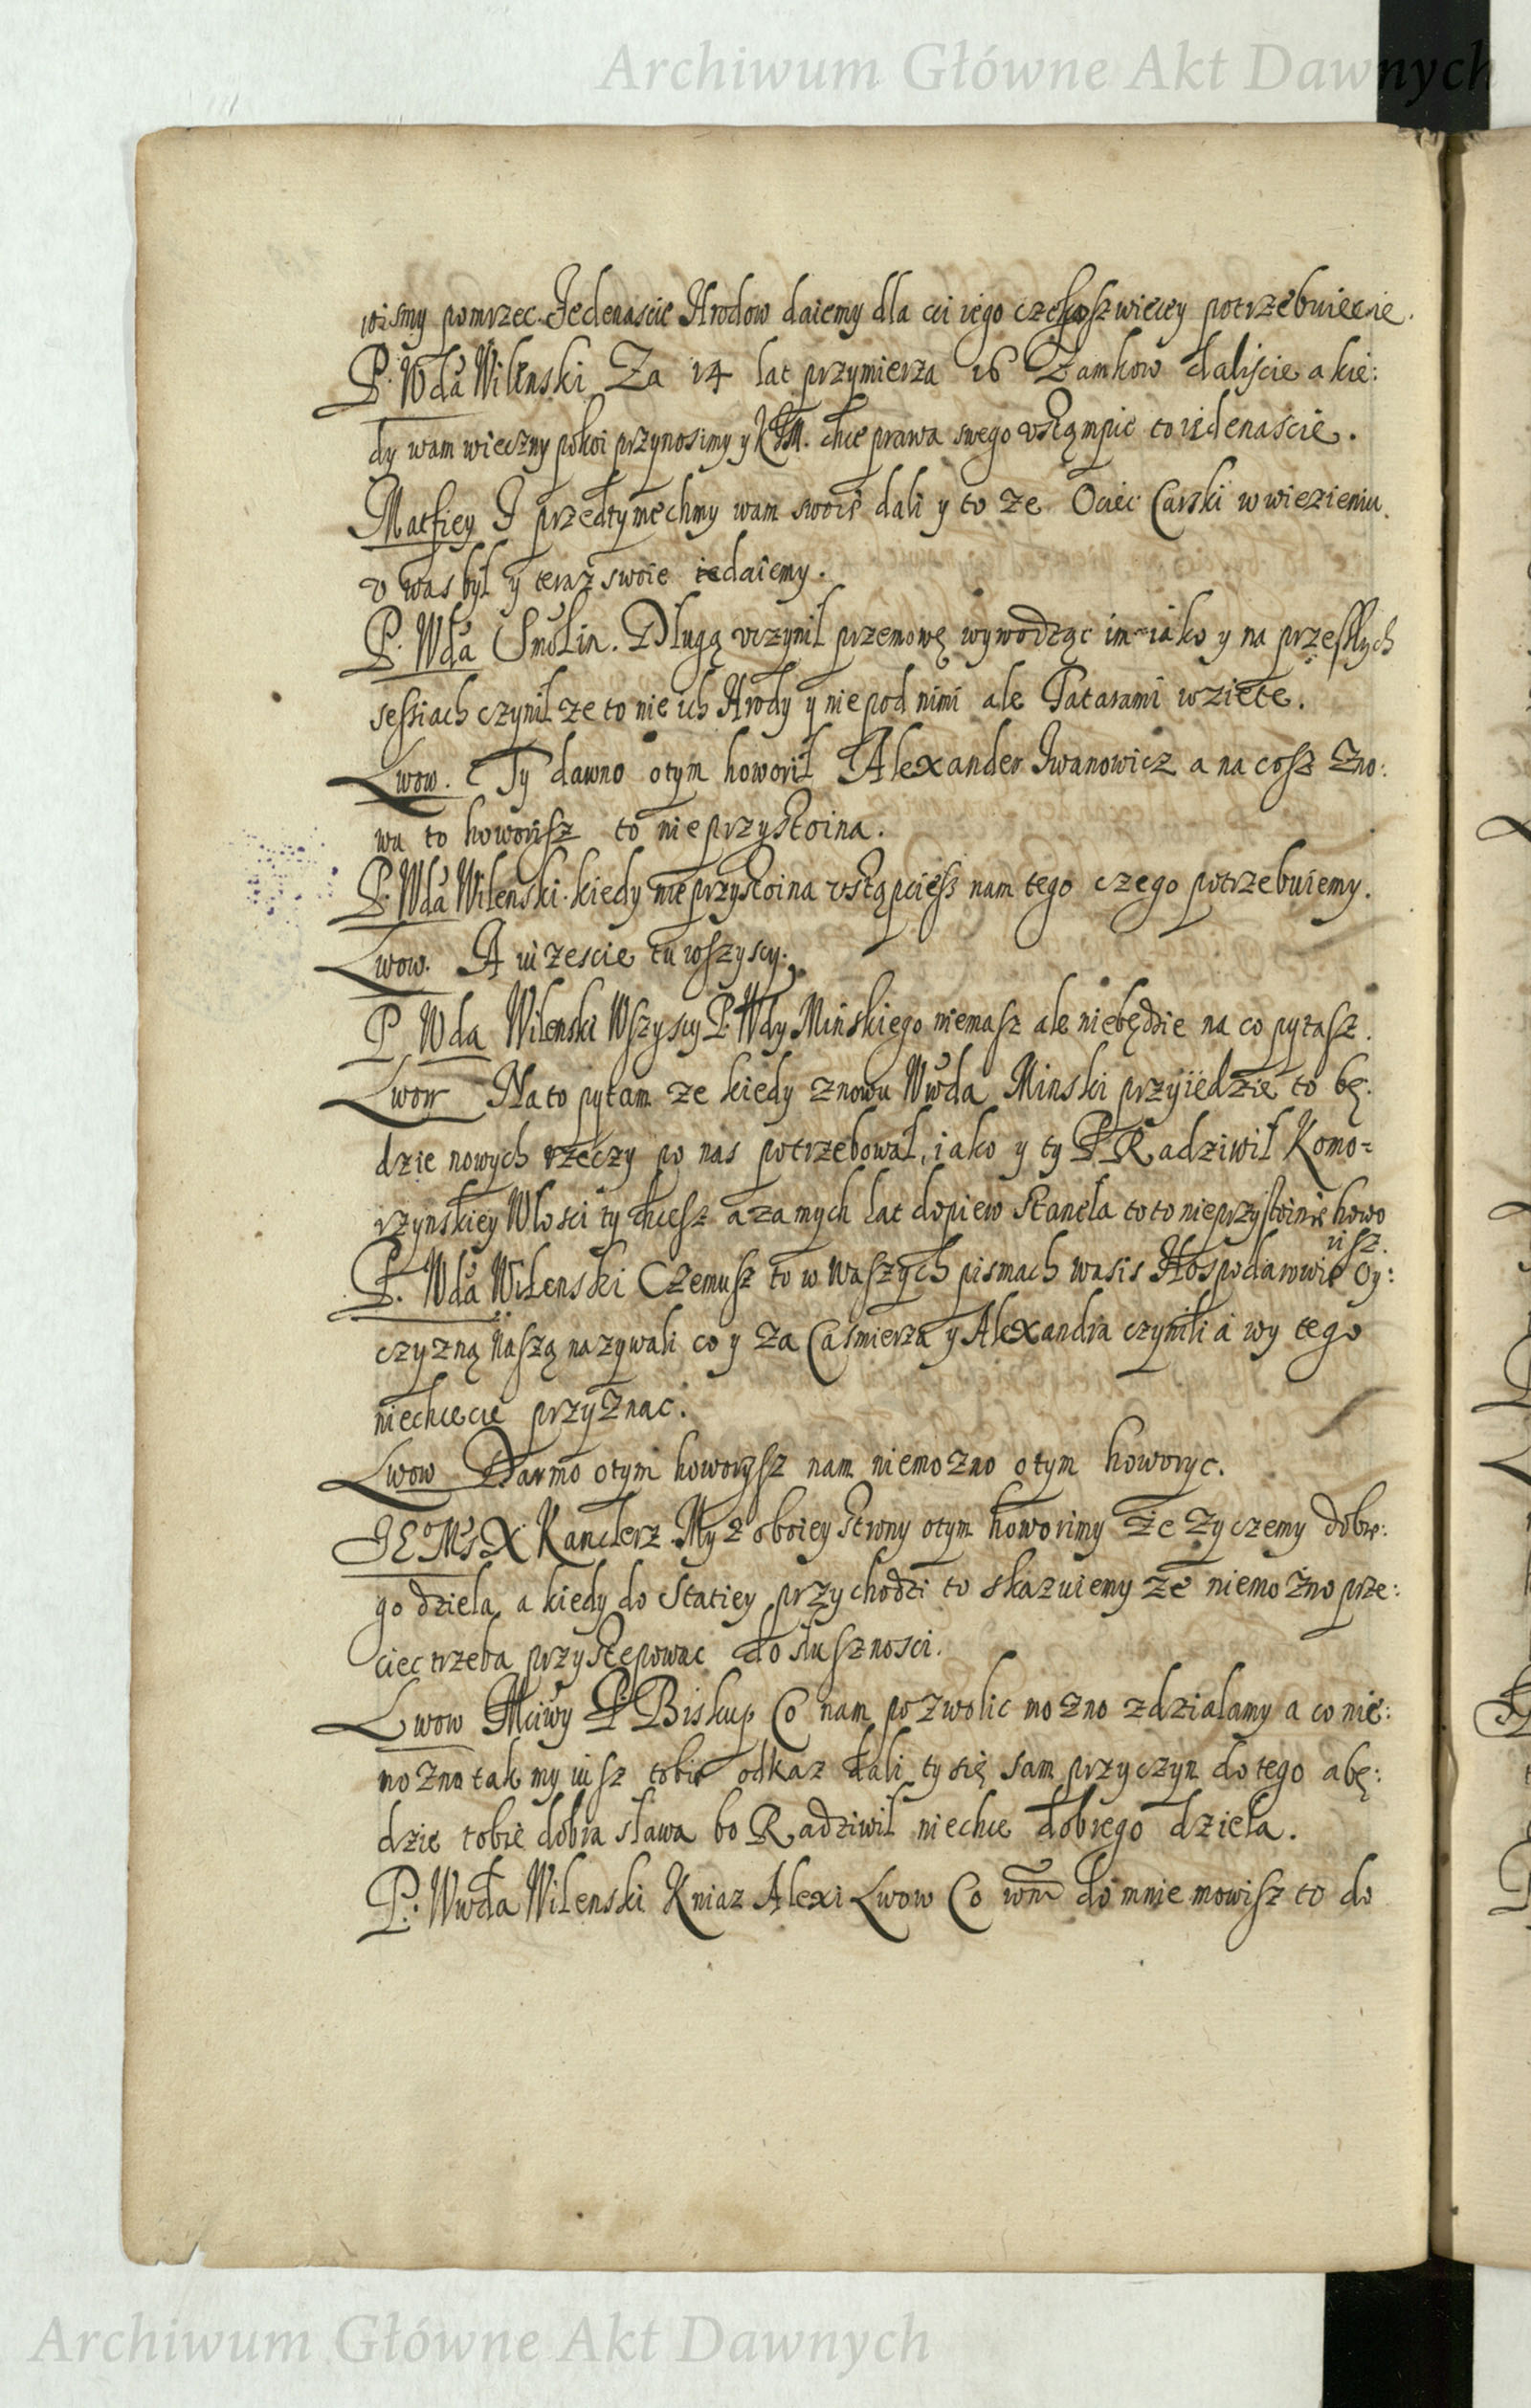 Archiwum Główne Akt Dawnych
wismy pomrzec. Jedenascie Hrodow daiemy dla czegosz wiecey potrzebuiecie.
P. Wda Wilenski Za 14 lat przymierza 16 Zamkow daliscie a kie:
dy wam wieczny pokoi przynosimy y KJM. chce prawa swego ustąmpic to iedenascie.
Matfiey I przedtymechmy wam swoie dali y to ze Ociec Carski w wiezieniu
v was był y teraz swoie daiemy.
P. Wda Smolin. Długą uczynił przemowę wywodząc im iako y na przeszłych
sessiach czynił ze to nie ich Hrody y nie pod nimi ale Tatarami wziete.
Lwow. Ty dawno otym howorił Alexander Iwanowicz a na cosz zno:
wu to howorisz to nieprzystoina.
P. Wda Wilenski. kiedy nieprzystoina ustąpciesz nam tego czego potrzebuiemy.
Lwow. A iuzescie tu wszyscy.
P Wda Wilenski Wszyscy P. Wdy Minskiego niemasz ale niebędzie na co pytasz.
Lwow Na to pytam ze kiedy znowu Wwda Minski przyiedzie to bę:
dzie nowych rzeczy po nas potrzebował, iako y ty P Radziwił Komo=
rzynskiey Włosci ty chcesz a za mych lat dopiew stanęła to to nieprzystoinie howo
risz.
P. Wda Wilenski Czemusz to w waszych pismach wasis Hospodarowie Oy:
czyzną naszą nazywali co y za Casmierza y Alexandra czynili a wy tego
niechcecie przyznac.
Lwow Darmo otym howorysz nam niemozno otym howoryc.
JEoMs X Kanclerz My z oboiey strony otym howorimy ze zyczemy dobre:
go dzieła, a kiedy do Statiey przychodzi to skazuiemy ze niemozno prze:
ciec trzeba przystepowac do słusznosci.
Lwow Mciwy P Biskup Co nam pozwolic mozno zdziałamy a co nie:
mozno tak my iusz tobie odkaz dali ty się sam przyczyn do tego a bę:
dzie tobie dobra sława bo Radziwił niechce dobrego dzieła.
P. Wwda Wilenski Kniaz Alexi Lwow Co wm do mnie mowisz to do
Archiwum Główne Akt Dawnych